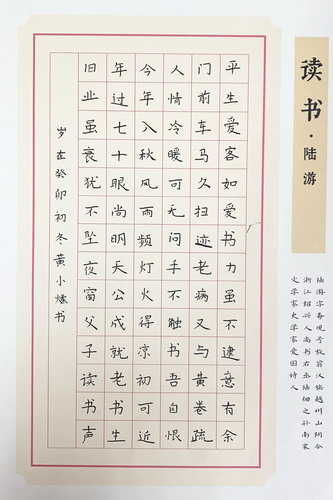 读书·陆游
陆游字务观号放翁汉族越州山阴今
浙江绍兴人尚书右丞陆佃之孙南宋
文学家史学家爱国诗人
平生爱客如爱书力虽不逮意有余
门前车马久扫迹老病又与黄卷疏
人情冷暖可无问手不触书吾自恨
今年入秋风雨频灯火得凉初可近
年过七十眼尚明天公成就老书生
旧业虽衰犹不坠夜窗父子读书声
岁在癸卯初冬黄小书